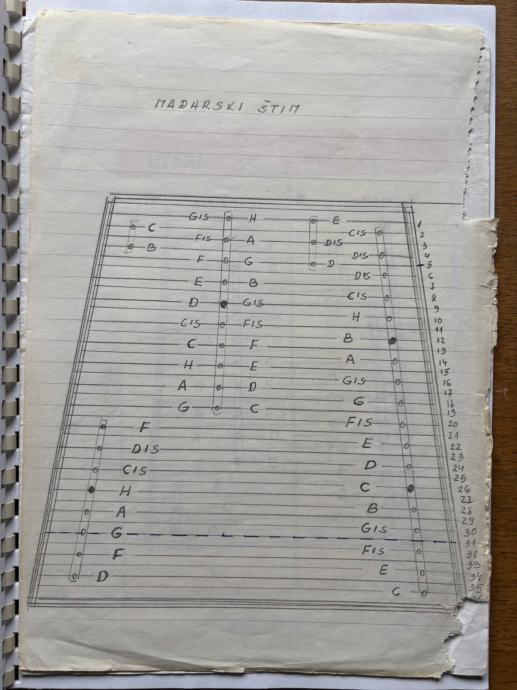 MAĐARSKI ŠTIM
GIS H E 1
C CIS 2
FIS A DIS 3
B DIS 4
F G D 5
DIS 6
E B 7
CIS 8
D GIS 9
H 10
CIS FIS 11
B 12
C F 13
A 14
H E 15
GIS 16
A D 17
G 18
G C 19
F FIS 20
21
DIS E 22
23
CIS D 24
25
H C 26
27
A B 28
29
G GIS 30
31
F FIS 32
33
D E 34
35
C